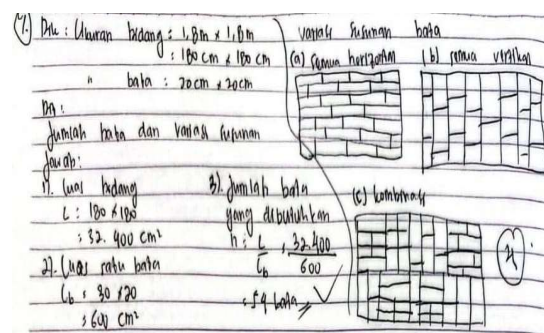 4. Dik : Ukuran bidang : 1,8m x 1,8m
: 180 cm x 180 cm
" bata : 20cm x 20cm
Dit :
Jumlah bata dan variasi susunan
Jawab:
1). Luas bidang
L : 180 x 180
: 32.400 cm²
2). Luas satu bata
Lb : 30 x 20
: 600 cm²
3). Jumlah bata
yang dibutuhkan
n : L / Lb : 32.400 / 600
: 54 bata
variasi susunan bata
(a) semua horizontal
(b) semua vertikal
(c) kombinasi